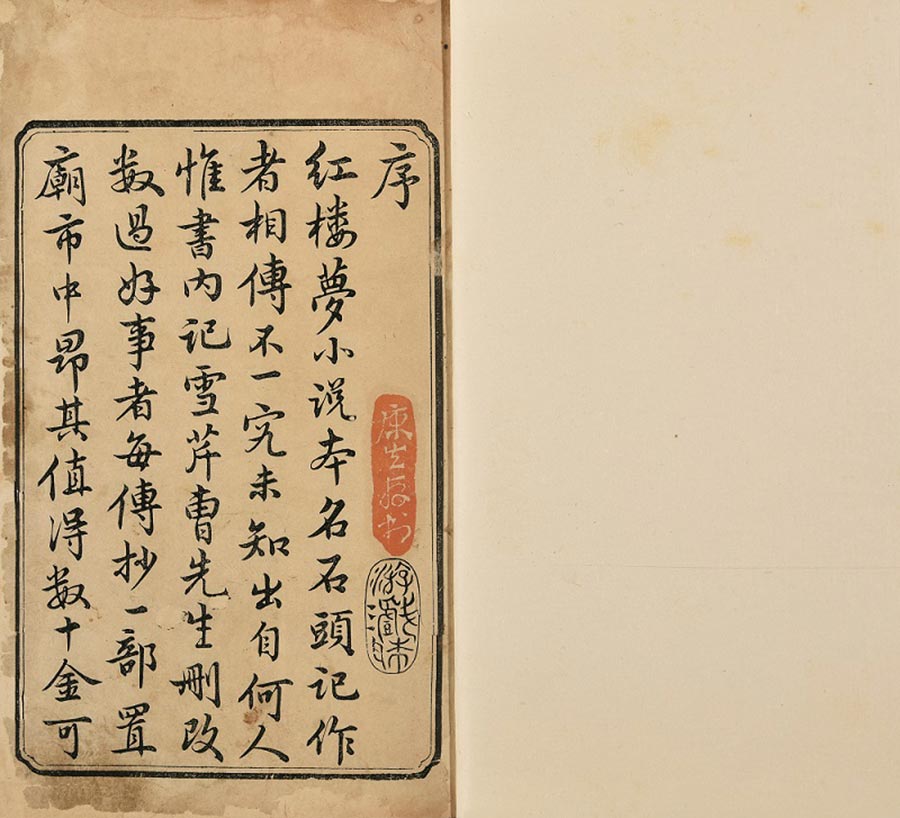 序
红楼夢小说本名石頭记作
者相傳不一究未知出自何人
惟書内记雪芹曹先生刪改
数過好事者每傳抄一部置
廟市中昂其值得数十金可